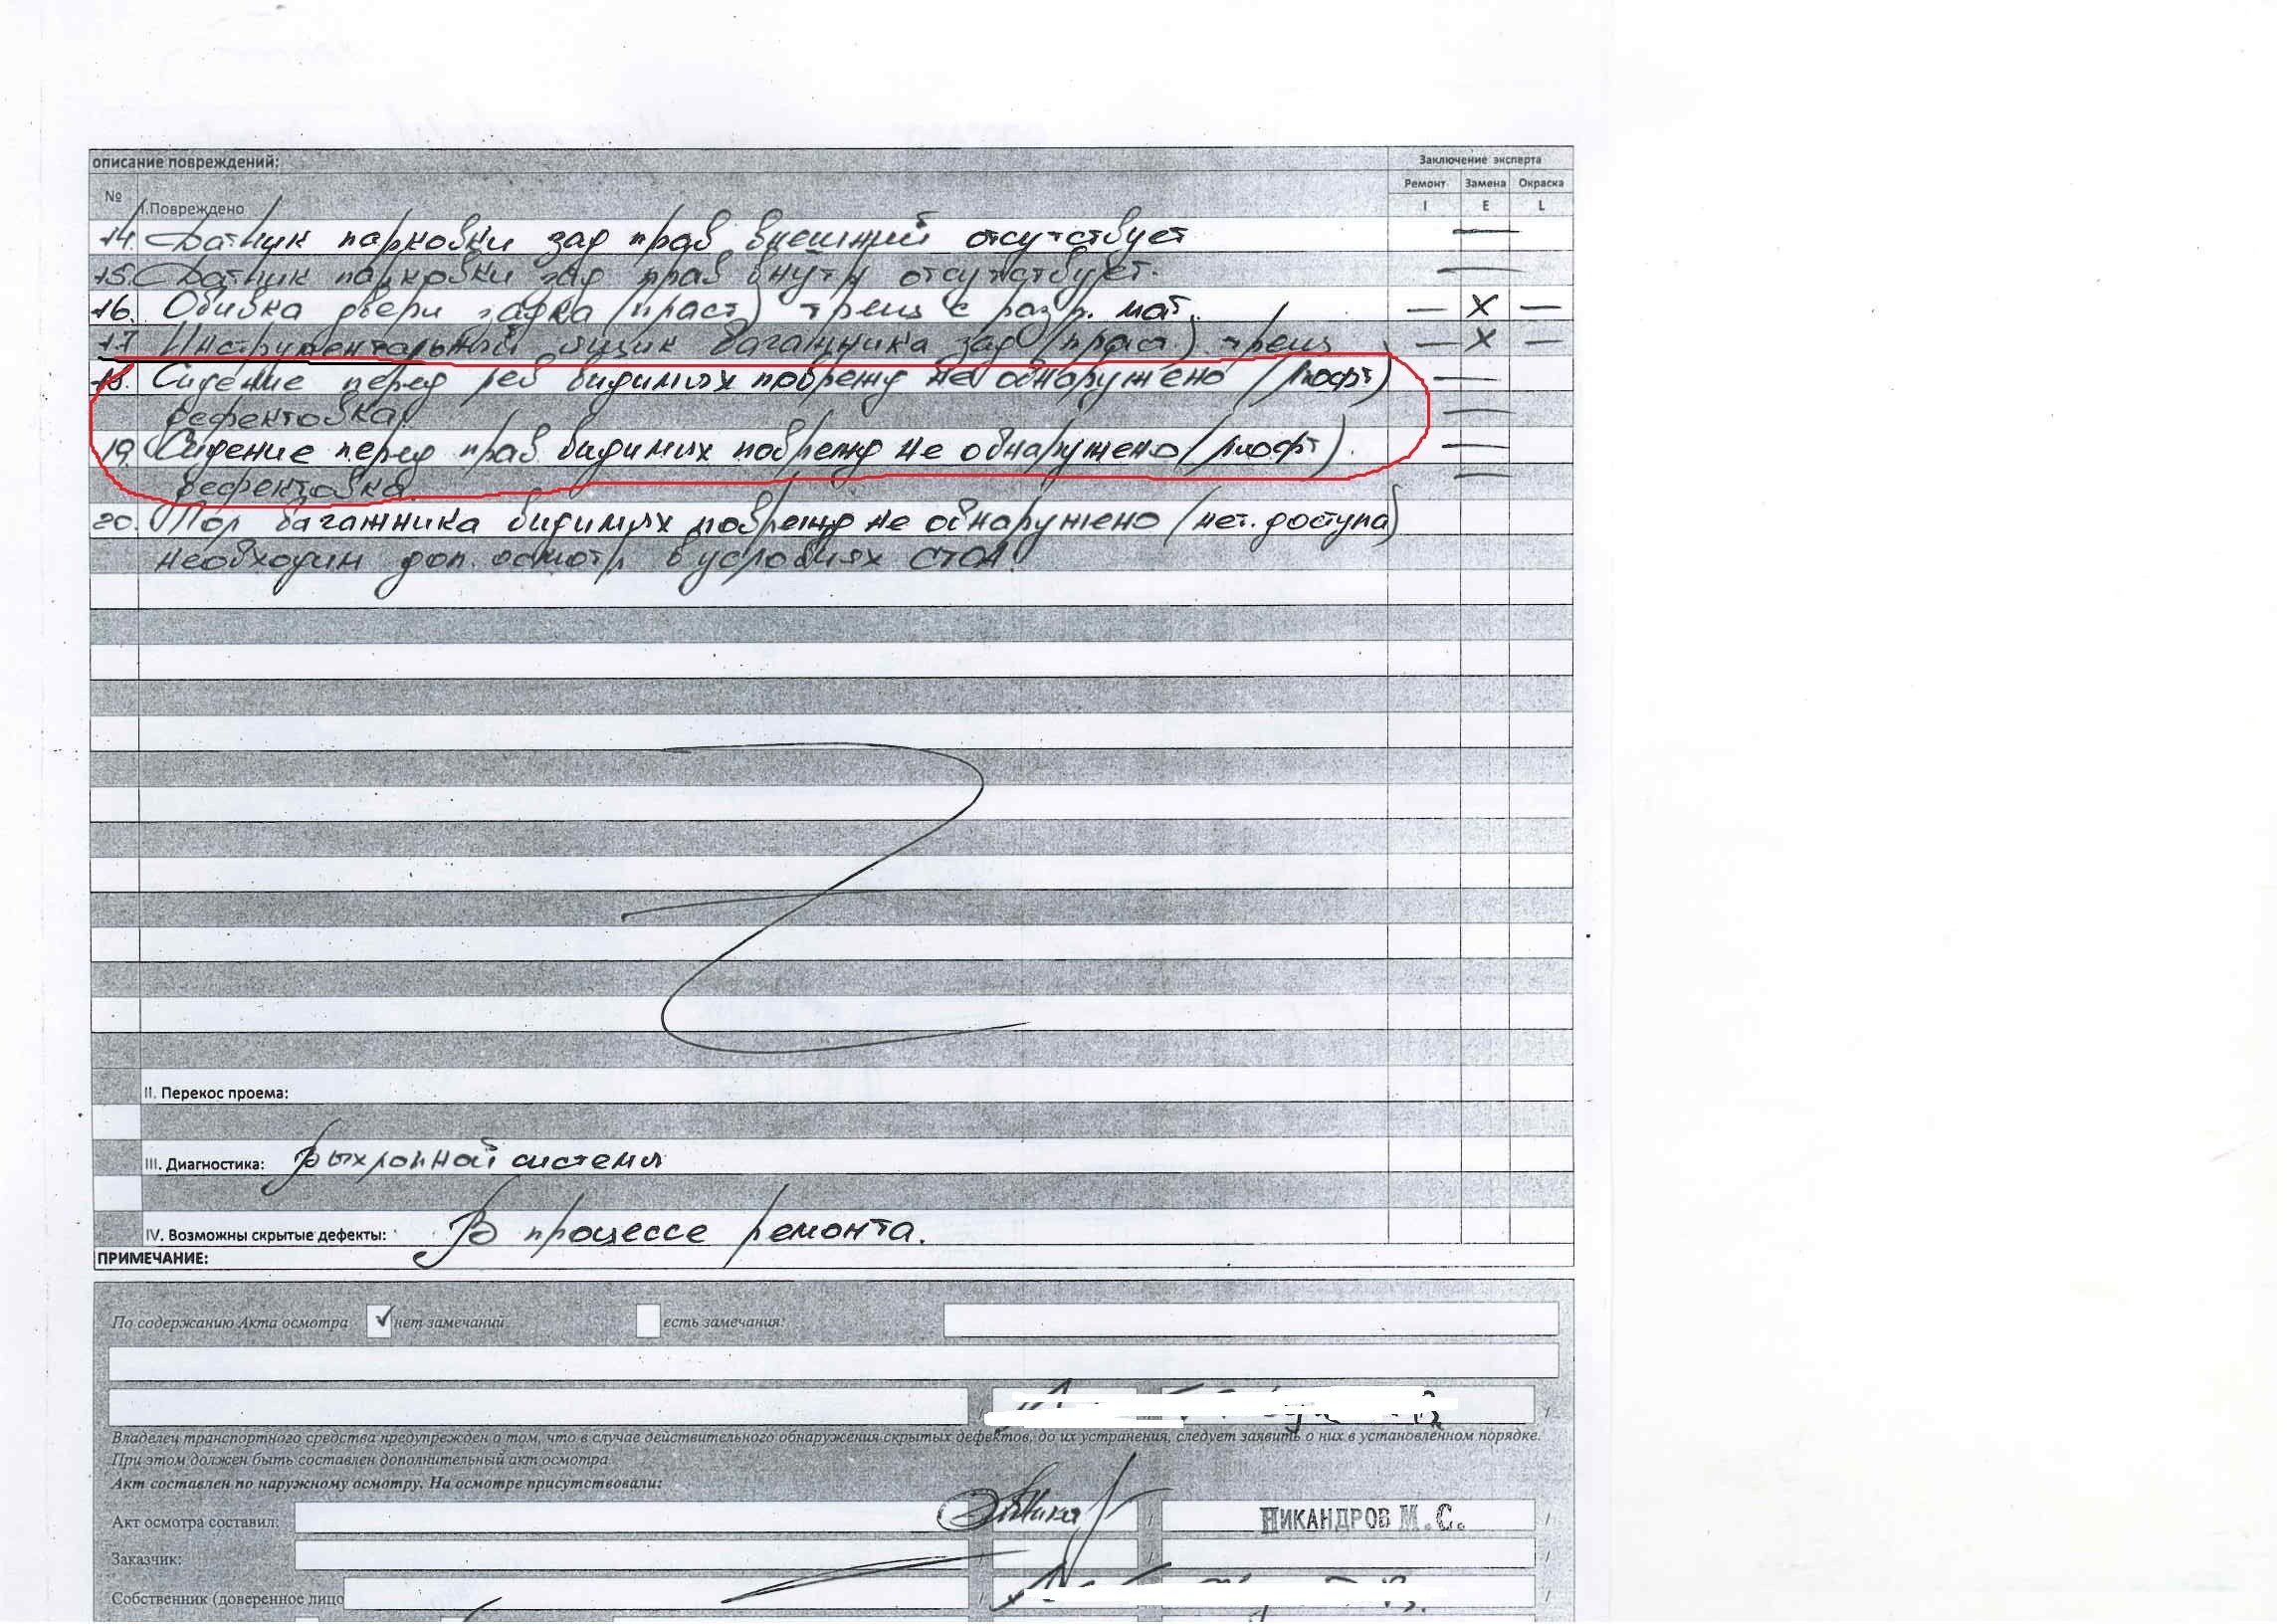 описание повреждений:
Заключение эксперта
№
I.Повреждено
Ремонт Замена Окраска
I E L
14. Датчик парковки зад прав внешний отсутствует —
15. Датчик парковки зад прав внутр отсутствует. —
16. Обивка двери задка (пласт) трещ с разр. мат. — X —
17 Инструментальный ящик багажника зад (пласт.) трещ — X —
18. Сидение перед лев видимых поврежд не обнаружено (люфт) —
дефектовка. —
19. Сидение перед прав видимых поврежд не обнаружено (люфт). —
дефектовка. —
20. Пол багажника видимых поврежд не обнаружено (нет. доступа)
необходим доп. осмотр в условиях СТОА.
II. Перекос проема:
III. Диагностика: выхлопной системы
IV. Возможны скрытые дефекты: В процессе ремонта.
ПРИМЕЧАНИЕ:
По содержанию Акта осмотра ✓ нет замечаний есть замечания:
Владелец транспортного средства предупрежден о том, что в случае действительного обнаружения скрытых дефектов, до их устранения, следует заявить о них в установленном порядке.
При этом должен быть составлен дополнительный акт осмотра
Акт составлен по наружному осмотру. На осмотре присутствовали:
Акт осмотра составил: / / НИКАНДРОВ М.С. /
Заказчик: / / /
Собственник (доверенное лицо